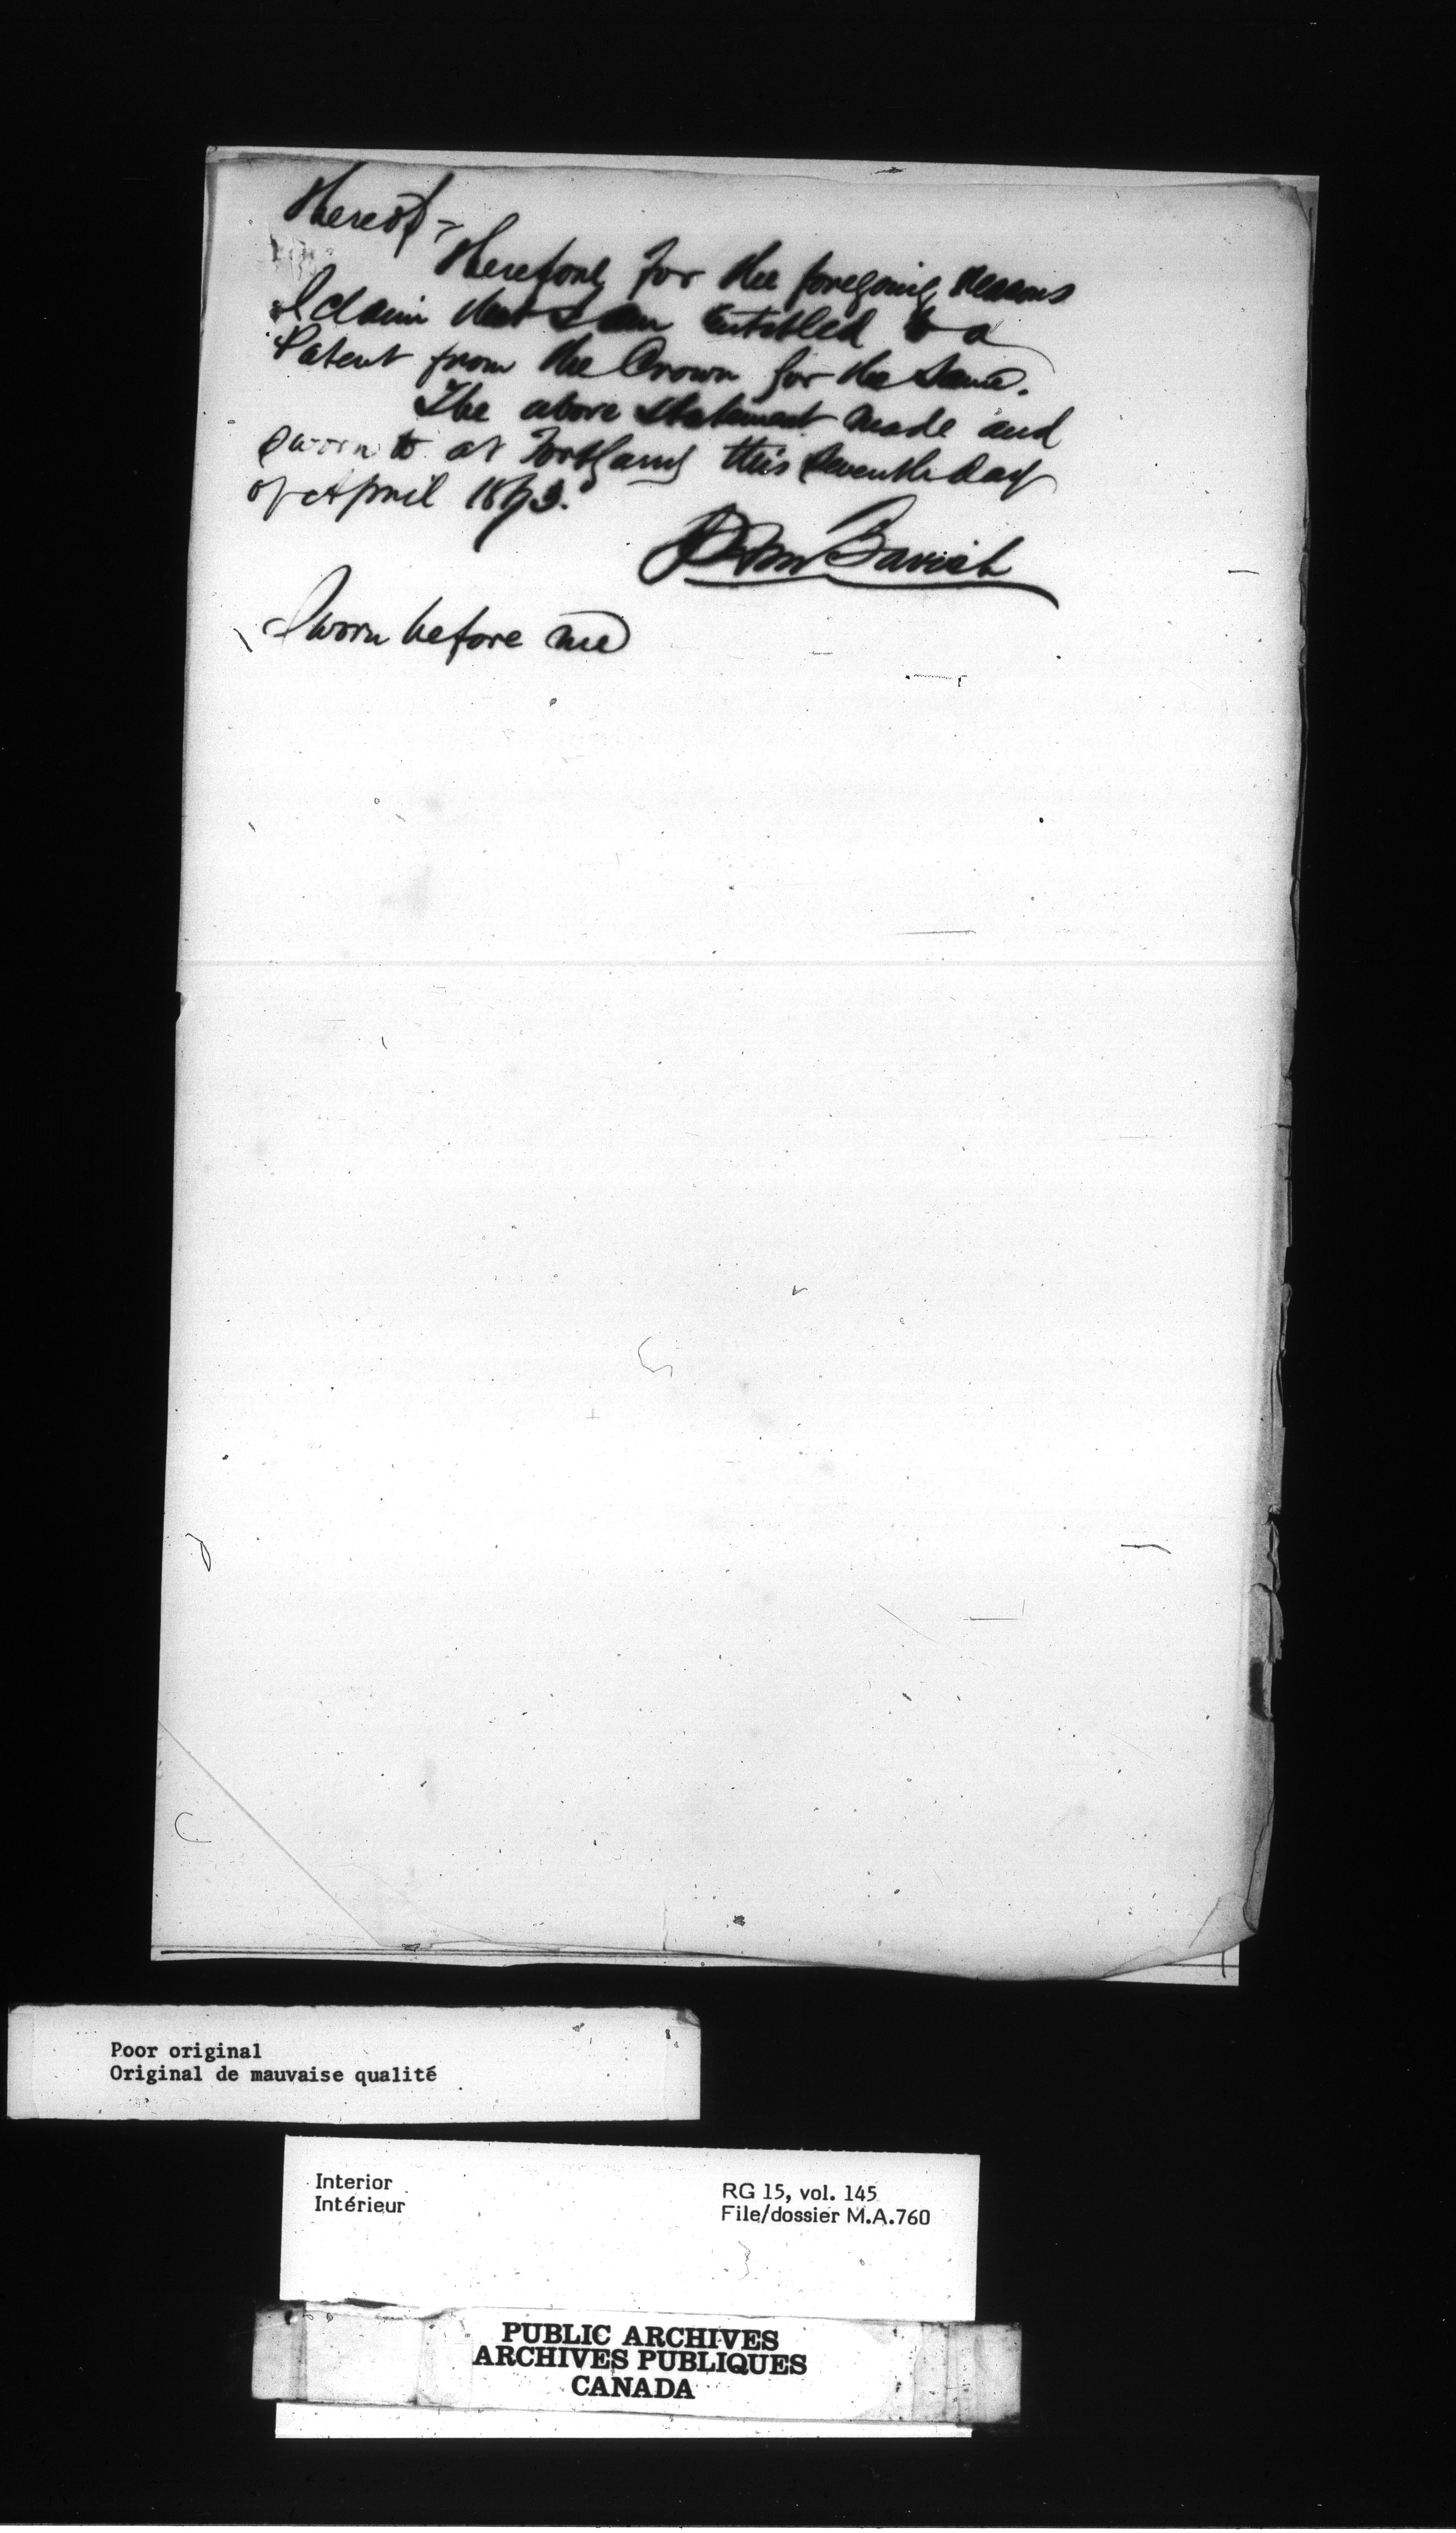 thereof -
Therefore for the foregoing reasons
I claim that I am entitled to a
Patent from the Crown for the same.
The above statement made and
sworn to at Fort Garry this seventh day
of April 1873.
Sworn before me
Poor original
Original de mauvaise qualité
Interior
Intérieur
RG 15, vol. 145
File/dossier M.A.760
PUBLIC ARCHIVES
ARCHIVES PUBLIQUES
CANADA